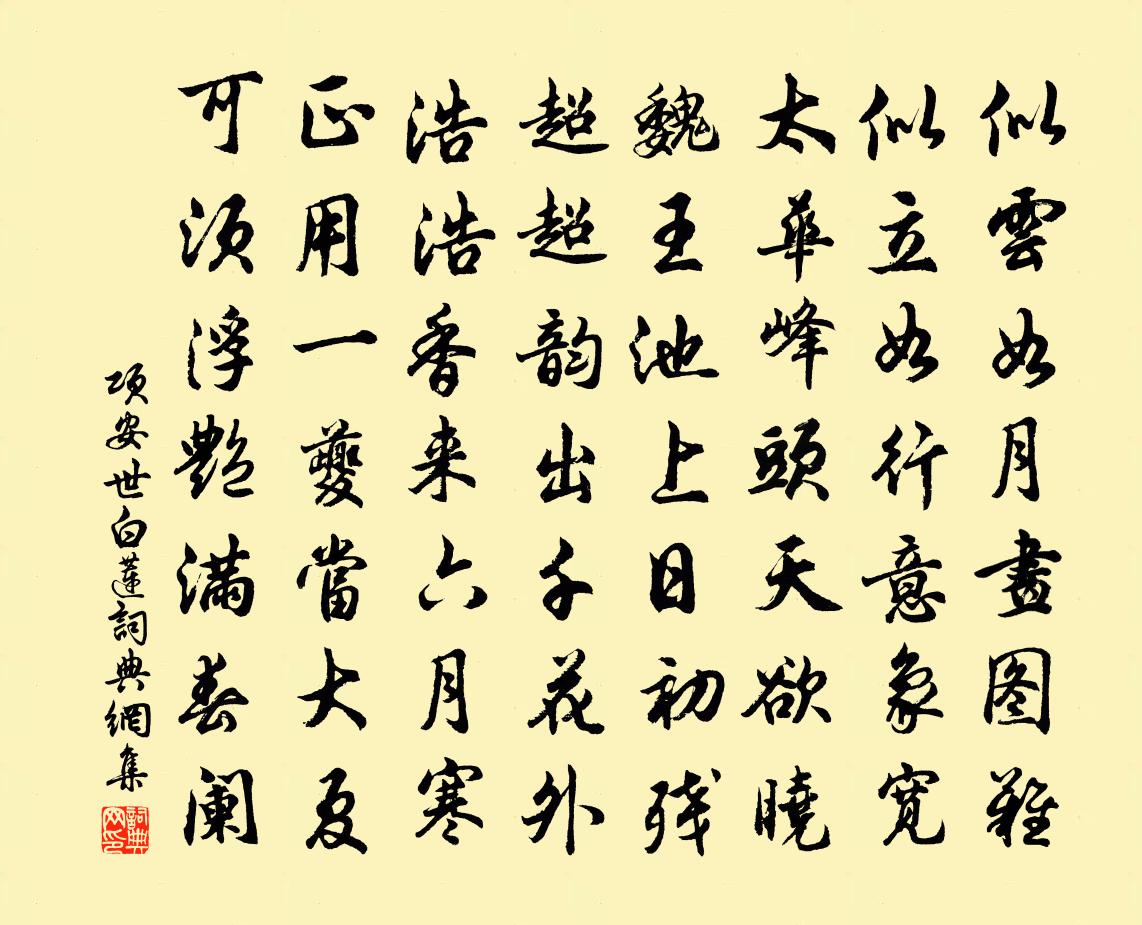 似雲如月畫图難
似立如行意象寬
太華峰頭天欲曉
魏王池上日初残
超超韵出千花外
浩浩香来六月寒
正用一夔當大夏
可须浮艷满春阑
项安世白蓮詞典網集
詞典网印